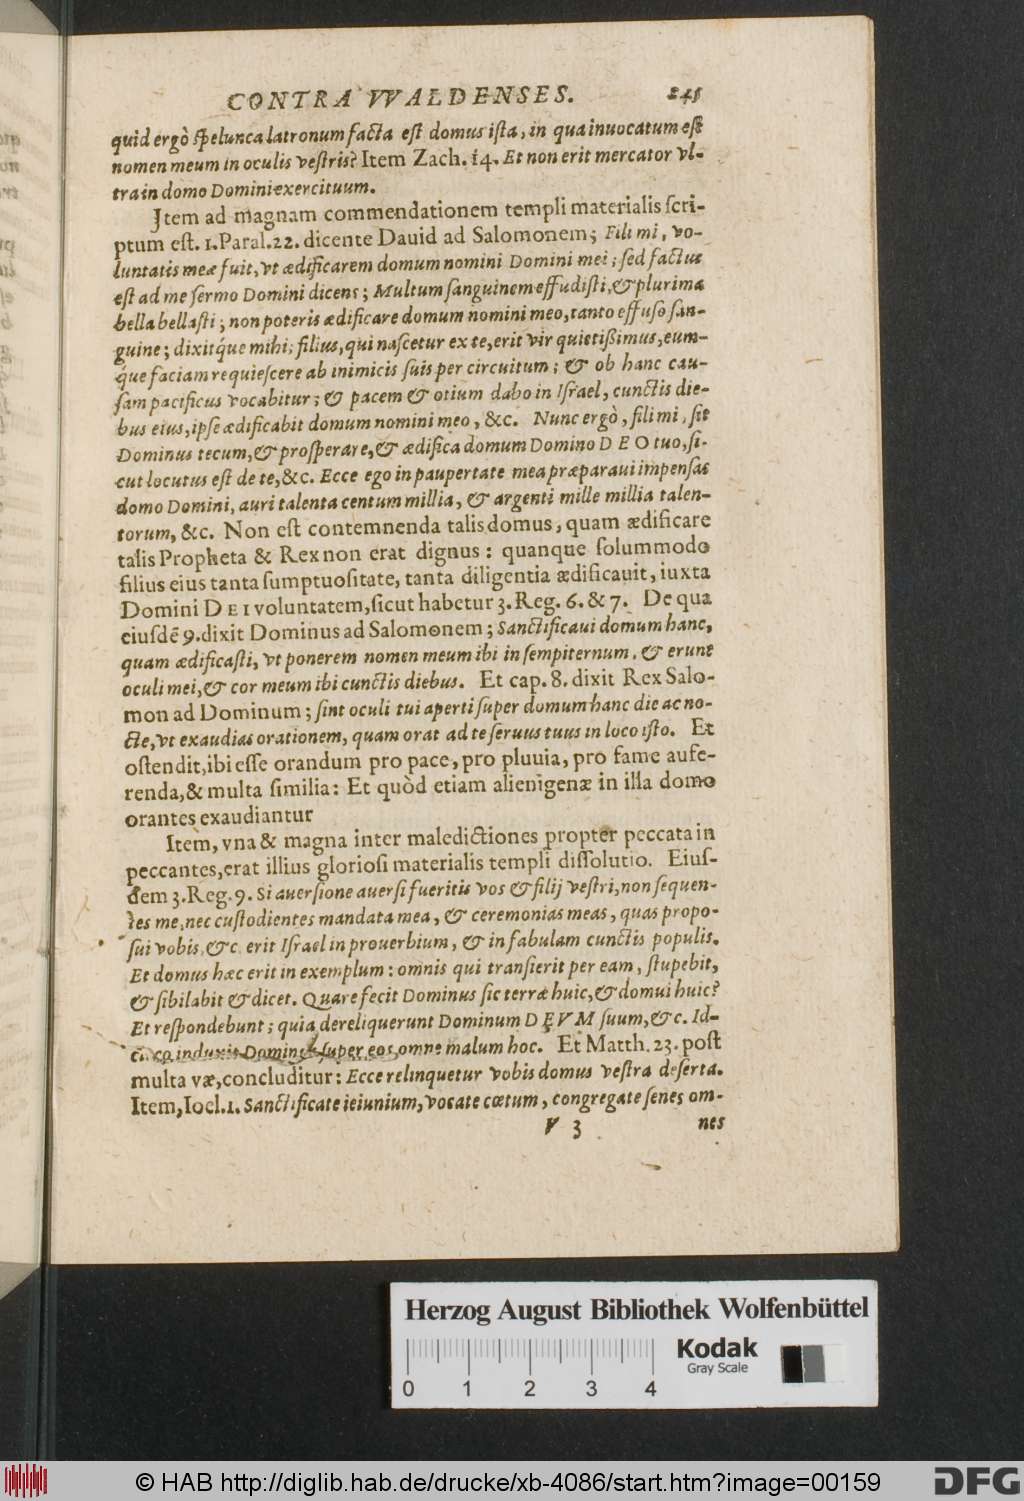 CONTRA VVALDENSES. 245
quid ergò spelunca latronum facta est domus ista, in qua inuocatum est
nomen meum in oculis vestris? Item Zach. 14. Et non erit mercator vl-
tra in domo Domini exercituum.
Item ad magnam commendationem templi materialis scri-
ptum est. 1. Paral. 22. dicente Dauid ad Salomonem; Fili mi, vo-
luntatis meæ fuit, vt ædificarem domum nomini Domini mei; sed factus
est ad me sermo Domini dicens; Multum sanguinem effudisti, & plurima
bella bellasti; non poteris ædificare domum nomini meo, tanto effuso san-
guine; dixitq́ue mihi; filius, qui nascetur ex te, erit vir quietissimus, eum-
q́ue faciam requiescere ab inimicis suis per circuitum; & ob hanc cau-
sam pacificus vocabitur; & pacem & otium dabo in Israel, cunctis die-
bus eius, ipse ædificabit domum nomini meo, &c. Nunc ergò, fili mi, sit
Dominus tecum, & prosperare, & ædifica domum Domino DEO tuo, si-
cut locutus est de te, &c. Ecce ego in paupertate mea præparaui impensas
domo Domini, auri talenta centum millia, & argenti mille millia talen-
torum, &c. Non est contemnenda talis domus, quam ædificare
talis Propheta & Rex non erat dignus: quanque solummodo
filius eius tanta sumptuositate, tanta diligentia ædificauit, iuxta
Domini DEI voluntatem, sicut habetur 3. Reg. 6. & 7. De qua
eiusdē 9. dixit Dominus ad Salomonem; Sanctificaui domum hanc,
quam ædificasti, vt ponerem nomen meum ibi in sempiternum. & erunt
oculi mei, & cor meum ibi cunctis diebus. Et cap. 8. dixit Rex Salo-
mon ad Dominum; sint oculi tui aperti super domum hanc die ac no-
cte, vt exaudias orationem, quam orat ad te seruus tuus in loco isto. Et
ostendit, ibi esse orandum pro pace, pro pluuia, pro fame aufe-
renda, & multa similia: Et quòd etiam alienigenæ in illa domo
orantes exaudiantur
Item, vna & magna inter maledictiones propter peccata in
peccantes, erat illius gloriosi materialis templi dissolutio. Eius-
dem 3. Reg. 9. Si auersione auersi fueritis vos & filij vestri, non sequen-
tes me, nec custodientes mandata mea, & ceremonias meas, quas propo-
sui vobis, &c. erit Israel in prouerbium, & in fabulam cunctis populis.
Et domus hæc erit in exemplum: omnis qui transierit per eam, stupebit,
& sibilabit & dicet. Quare fecit Dominus sic terræ huic, & domui huic?
Et respondebunt; quia dereliquerunt Dominum DEVM suum, &c. Id-
circo induxit Dominus super eos omne malum hoc. Et Matth. 23. post
multa væ, concluditur: Ecce relinquetur vobis domus vestra deserta.
Item, Ioel. 1. Sanctificate ieiunium, vocate cœtum, congregate senes om-
V 3 nes
Herzog August Bibliothek Wolfenbüttel
Kodak
Gray Scale
0 1 2 3 4
© HAB http://diglib.hab.de/drucke/xb-4086/start.htm?image=00159
DFG